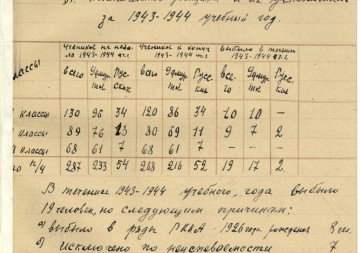 за 1943-1944 учебный год.
Учеников на нача-
ло 1943-1944 уч.г.
Учеников к концу
1943-1944 уч.г.
Выбыло в течении
1943-1944 уч.г.
классы
всего
Удмур-
ты
Рус-
ских
всего
Удмур-
ты
Рус-
ские
все-
го
Удмур-
ты
Рус-
ские
классы 130 96 34 120 86 34 10 10 —
классы 89 76 13 80 69 11 9 7 2
классы 68 61 7 68 61 7 — — —
по н/ч 287 233 54 268 216 52 19 17 2.
В течение 1943-1944 учебного года выбыло
19 человек, по следующим причинам:
а) выбыло в ряды РККА - 1926 года рождения 8 чел.
б) исключено по неуспеваемости 7